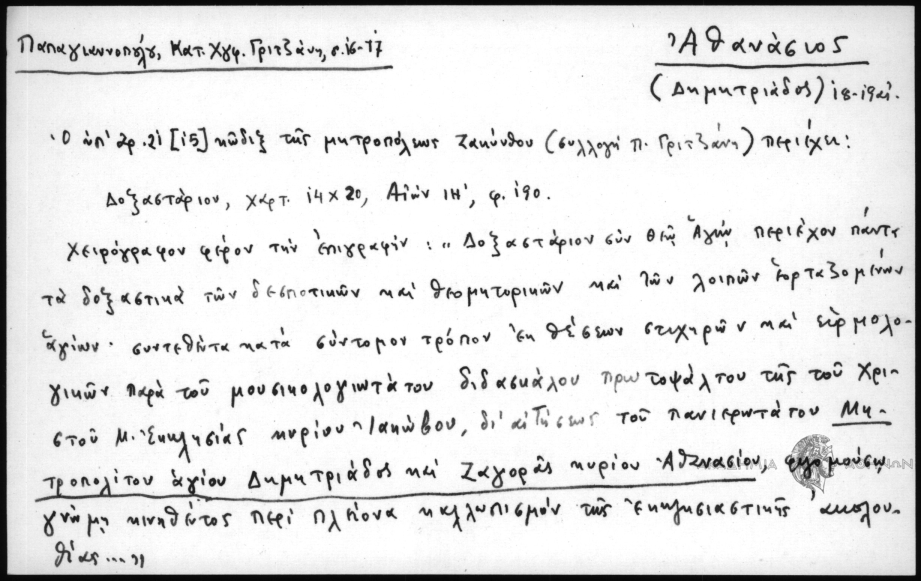 Παπαγιαννοπούλου, Κατ. Χγφ. Γριτζάνη, σ. 16-17
Ἀθανάσιος
(Δημητριάδος) 18-19αἰ.
Ὁ ὑπ' ἀρ. 21 [15] κῶδιξ τῆς μητροπόλεως Ζακύνθου (συλλογὴ Π. Γριτζάνη) περιέχει:
Δοξαστάριον, χαρτ. 14 x 20, Αἰὼν ΙΗ', φ. 190.
Χειρόγραφον φέρον τὴν ἐπιγραφήν: "Δοξαστάριον σὺν Θεῷ Ἁγίῳ περιέχον πάντα
τὰ δοξαστικὰ τῶν δεσποτικῶν καὶ θεομητορικῶν καὶ τῶν λοιπῶν ἑορταζομένων
ἁγίων· συντεθέντα κατὰ σύντομον τρόπον ἐκ θέσεων στιχηρῶν καὶ εἱρμολο-
γικῶν παρὰ τοῦ μουσικολογιωτάτου διδασκάλου πρωτοψάλτου τῆς τοῦ Χρι-
στοῦ Μ. Ἐκκλησίας κυρίου Ἰακώβου, δι' αἰτήσεως τοῦ πανιερωτάτου Μη-
τροπολίτου ἁγίου Δημητριάδος καὶ Ζαγορᾶς κυρίου Ἀθανασίου, φιλομούσῳ
γνώμῃ κινηθέντος περὶ πλείονα καλλωπισμὸν τῆς ἐκκλησιαστικῆς ἀκολου-
θίας..."